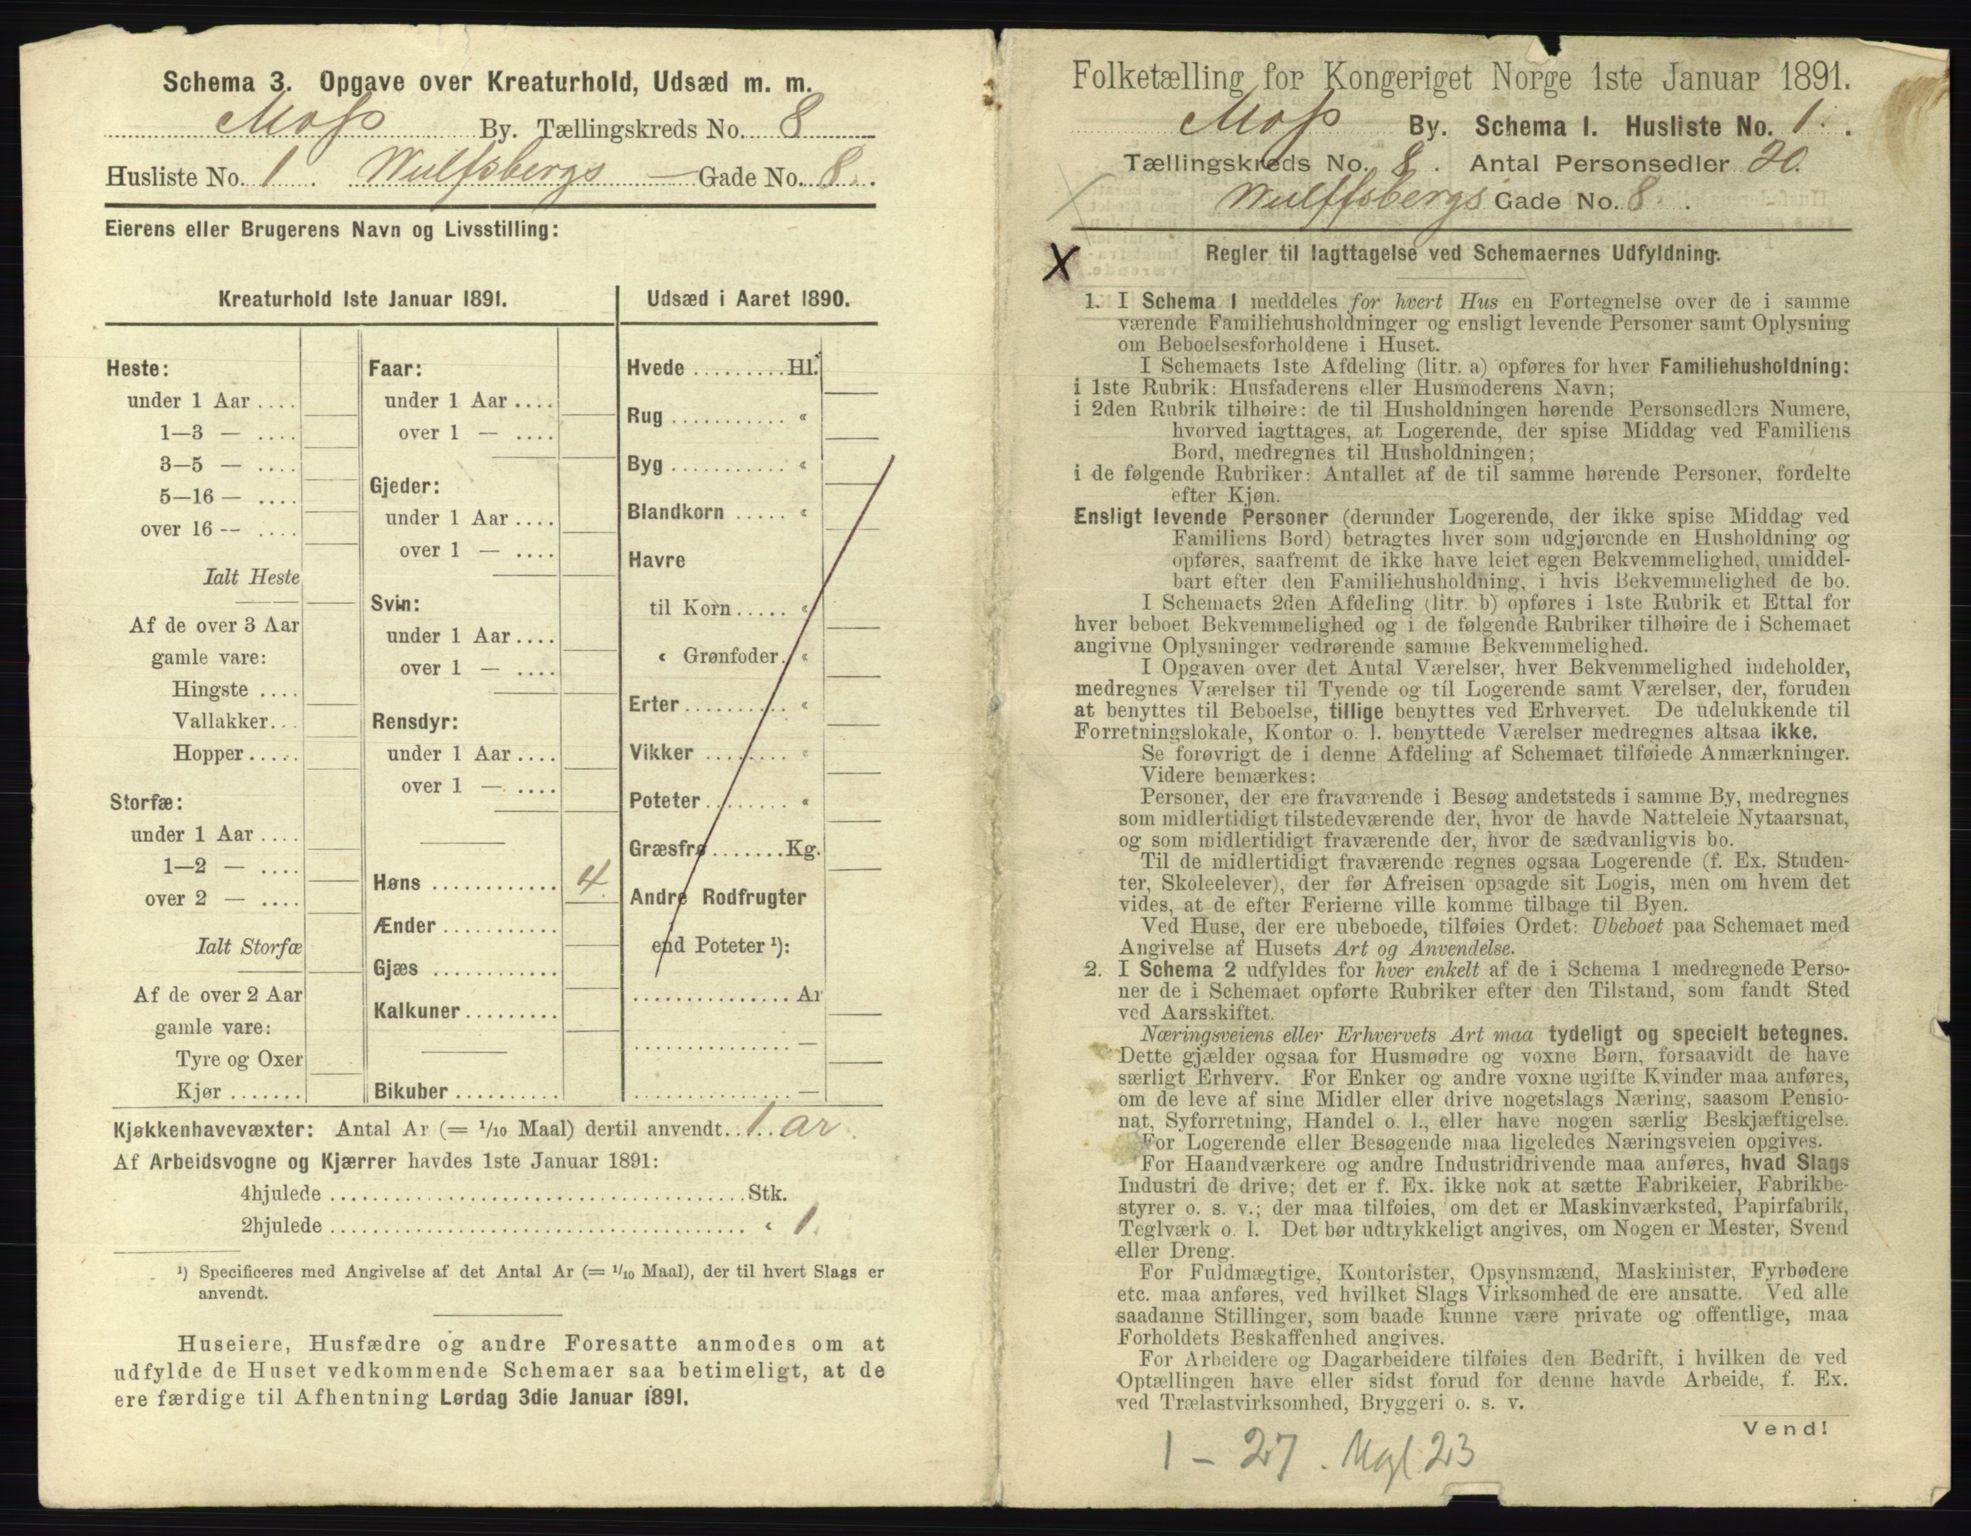 Schema 3. Opgave over Kreaturhold, Udsæd m. m.
Moss By. Tællingskreds No. 8
Husliste No. 1 Wulfsbergs - Gade No. 8.
Eierens eller Brugerens Navn og Livsstilling:
Kreaturhold 1ste Januar 1891.
Heste:
under 1 Aar ....
1—3 — ....
3—5 — ....
5—16 — ....
over 16 -- ....
Ialt Heste
Af de over 3 Aar
gamle vare:
Hingste ....
Vallakker...
Hopper.....
Storfæ:
under 1 Aar ....
1—2 — ....
over 2 — ....
Ialt Storfæ
Af de over 2 Aar
gamle vare:
Tyre og Oxer
Kjør .......
Faar:
under 1 Aar ....
over 1 — ....
Gjeder:
under 1 Aar ....
over 1 — ....
Svin:
under 1 Aar ....
over 1 — ....
Rensdyr:
under 1 Aar ....
over 1 — ....
Høns ............ 4.
Ænder ...........
Gjæs ............
Kalkuner.........
Bikuber ..........
Udsæd i Aaret 1890.
Hvede .........Hl.
Rug ........... «
Byg ........... «
Blandkorn ..... «
Havre
til Korn..... «
« Grønfoder. «
Erter.......... «
Vikker ........ «
Poteter........ «
Græsfrø.......Kg.
Andre Rodfrugter
end Poteter ¹):
...............Ar
...............—
...............—
Kjøkkenhavevæxter: Antal Ar (= 1/10 Maal) dertil anvendt..1..ar.
Af Arbeidsvogne og Kjærrer havdes 1ste Januar 1891:
4hjulede ........................................Stk.
2hjulede ........................................ « 1.
¹) Specificeres med Angivelse af det Antal Ar (= 1/10 Maal), der til hvert Slags er
anvendt.
Huseiere, Husfædre og andre Foresatte anmodes om at
udfylde de Huset vedkommende Schemaer saa betimeligt, at de
ere færdige til Afhentning Lørdag 3die Januar 1891.
Folketælling for Kongeriget Norge 1ste Januar 1891.
Moss By. Schema I. Husliste No. 1.
Tællingskreds No. 8. Antal Personsedler 20.
Wulffsbergs Gade No. 8.
X
Regler til Iagttagelse ved Schemaernes Udfyldning.
1. I Schema 1 meddeles for hvert Hus en Fortegnelse over de i samme
værende Familiehusholdninger og ensligt levende Personer samt Oplysning
om Beboelsesforholdene i Huset.
I Schemaets 1ste Afdeling (litr. a) opføres for hver Familiehusholdning:
i 1ste Rubrik: Husfaderens eller Husmoderens Navn;
i 2den Rubrik tilhøire: de til Husholdningen hørende Personsedlers Numere,
hvorved iagttages, at Logerende, der spise Middag ved Familiens
Bord, medregnes til Husholdningen;
i de følgende Rubriker: Antallet af de til samme hørende Personer, fordelte
efter Kjøn.
Ensligt levende Personer (derunder Logerende, der ikke spise Middag ved
Familiens Bord) betragtes hver som udgjørende en Husholdning og
opføres, saafremt de ikke have leiet egen Bekvemmelighed, umiddel-
bart efter den Familiehusholdning, i hvis Bekvemmelighed de bo.
I Schemaets 2den Afdeling (litr. b) opføres i 1ste Rubrik et Ettal for
hver beboet Bekvemmelighed og i de følgende Rubriker tilhøire de i Schemaet
angivne Oplysninger vedrørende samme Bekvemmelighed.
I Opgaven over det Antal Værelser, hver Bekvemmelighed indeholder,
medregnes Værelser til Tyende og til Logerende samt Værelser, der, foruden
at benyttes til Beboelse, tillige benyttes ved Erhvervet. De udelukkende til
Forretningslokale, Kontor o. l. benyttede Værelser medregnes altsaa ikke.
Se forøvrigt de i denne Afdeling af Schemaet tilføiede Anmærkninger.
Videre bemærkes:
Personer, der ere fraværende i Besøg andetsteds i samme By, medregnes
som midlertidigt tilstedeværende der, hvor de havde Natteleie Nytaarsnat,
og som midlertidigt fraværende der, hvor de sædvanligvis bo.
Til de midlertidigt fraværende regnes ogsaa Logerende (f. Ex. Studen-
ter, Skoleelever), der før Afreisen opsagde sit Logis, men om hvem det
vides, at de efter Ferierne ville komme tilbage til Byen.
Ved Huse, der ere ubeboede, tilføies Ordet: Ubeboet paa Schemaet med
Angivelse af Husets Art og Anvendelse.
2. I Schema 2 udfyldes for hver enkelt af de i Schema 1 medregnede Perso-
ner de i Schemaet opførte Rubriker efter den Tilstand, som fandt Sted
ved Aarsskiftet.
Næringsveiens eller Erhvervets Art maa tydeligt og specielt betegnes.
Dette gjælder ogsaa for Husmødre og voxne Børn, forsaavidt de have
særligt Erhverv. For Enker og andre voxne ugifte Kvinder maa anføres,
om de leve af sine Midler eller drive nogetslags Næring, saasom Pensio-
nat, Syforretning, Handel o. l., eller have nogen særlig Beskjæftigelse.
For Logerende eller Besøgende maa ligeledes Næringsveien opgives.
For Haandværkere og andre Industridrivende maa anføres, hvad Slags
Industri de drive; det er f. Ex. ikke nok at sætte Fabrikeier, Fabrikbe-
styrer o. s. v.; der maa tilføies, om det er Maskinværksted, Papirfabrik,
Teglværk o. l. Det bør udtrykkeligt angives, om Nogen er Mester, Svend
eller Dreng.
For Fuldmægtige, Kontorister, Opsynsmænd, Maskinister, Fyrbødere
etc. maa anføres, ved hvilket Slags Virksomhed de ere ansatte. Ved alle
saadanne Stillinger, som baade kunne være private og offentlige, maa
Forholdets Beskaffenhed angives.
For Arbeidere og Dagarbeidere tilføies den Bedrift, i hvilken de ved
Optællingen have eller sidst forud for denne havde Arbeide, f. Ex.
ved Trælastvirksomhed, Bryggeri o. s. v.
Vend!
1 - 27. Mgl 23